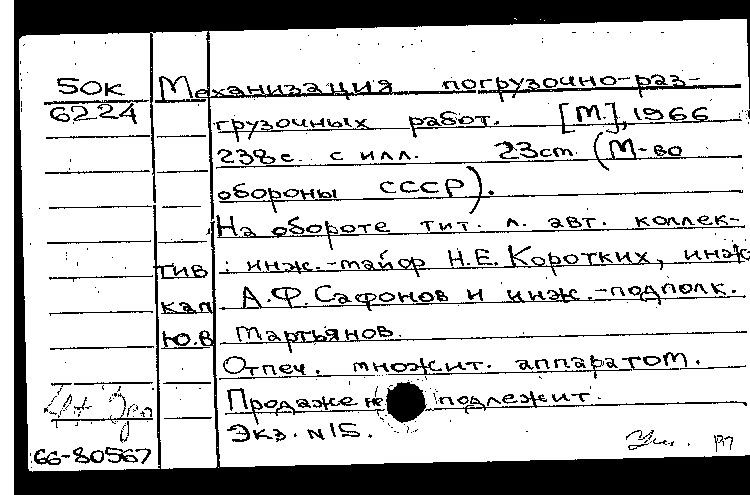 50к Механизация погрузочно-раз-
6224 грузочных работ. [М.], 1966
238с. с илл. 23cm (М-во
обороны СССР).
На обороте тит. л. авт. коллек-
тив : инж.-майор Н.Е. Коротких, инж
кап. А.Ф. Сафонов и инж.-подполк.
Ю.В. Мартьянов.
Отпеч. множит. аппаратом.
Продаже не подлежит.
Экз. N15.
66-80567